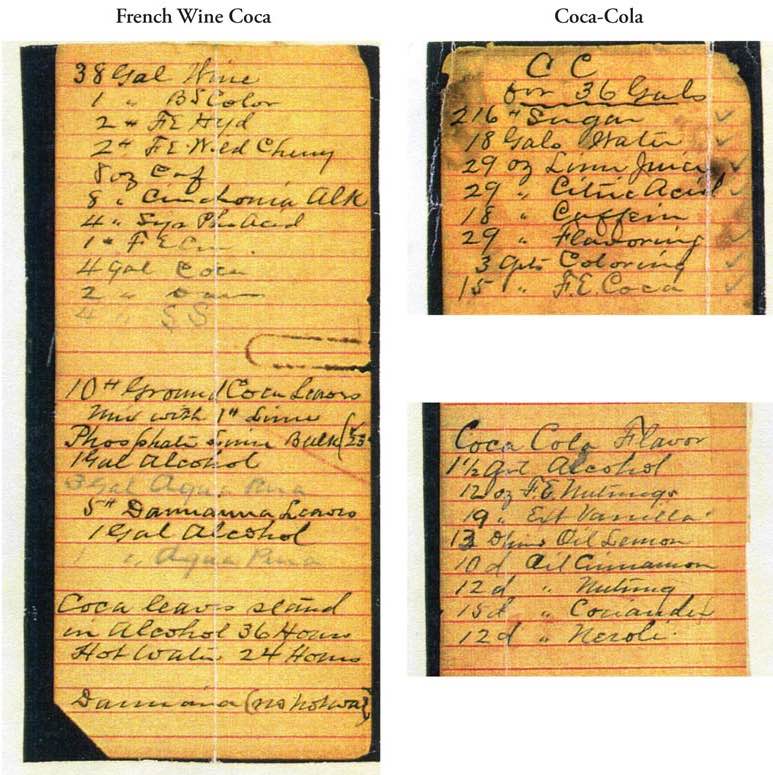 French Wine Coca
38 Gal Wine
1 " BSColor
2 # F.E Hyd
2 # F.E Wild Cherry
8 oz Caf
8 " Cinchonia Alk
4 " Syr Phs Acid
1 " F E
4 Gal Coca
2 "
4 " S S
10 # Ground Coca Leaves
Mix with 1 # Lime
Phosphate Lime Bulk
1 Gal Alcohol
3 Gal Aqua Pura
5 # Damianna Leaves
1 Gal Alcohol
1 " Aqua Pura
Coca leaves stand
in Alcohol 36 Hours
Hot Water 24 Hours
Damiana (no hot wa)
Coca-Cola
C C
for 36 Gals
216 # Sugar
18 Gals Water
29 oz Lime Juice
29 " Citric Acid
18 " Caffein
29 " Flavoring
3 qts Coloring
15 " F.E. Coca
Coca Cola Flavor
1½ qrt Alcohol
12 oz F.E. Nutmegs
19 " Ext Vanilla
13 Oil Lemon
10 d Oil Cinnamon
12 d " Nutmeg
15 d " Coriander
12 d " Neroli